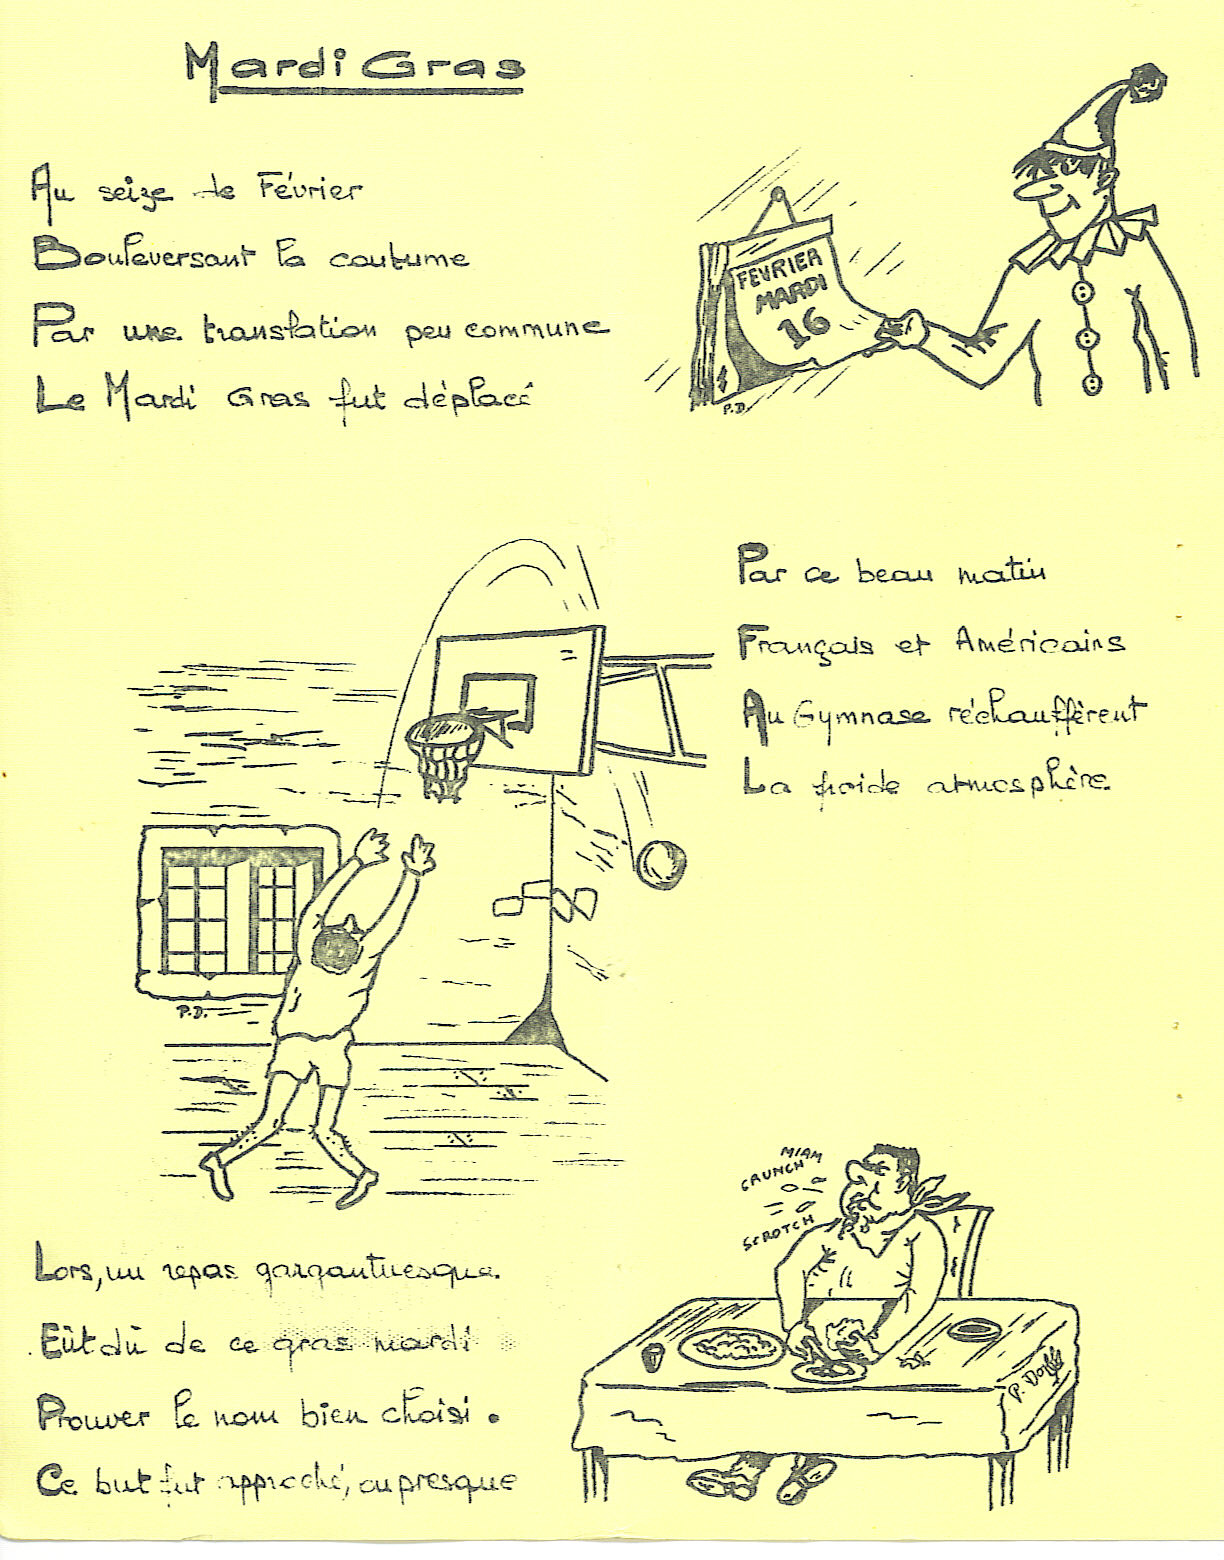 Mardi Gras
Au seize de Février
Bouleversant la coutume
Par une translation peu commune
Le Mardi Gras fut déplacé
FEVRIER
MARDI
16
P.D.
Par ce beau matin
Français et Américains
Au Gymnase réchauffèrent
La froide atmosphère.
P.D.
Lors, un repas gargantuesque.
Eût dû de ce gras mardi
Prouver le nom bien choisi.
Ce but fut approché, ou presque
MIAM
CRUNCH
SCROTCH
P.